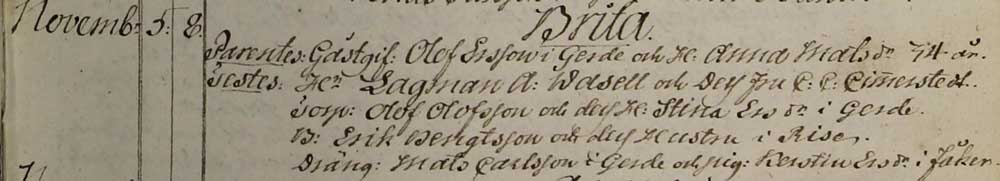 Novemb: 5. 8. Brita.
Parentes: Gästgif: Olof Ersson i Gerde och H: Anna Matsdr 74 år.
Testes: Hr Lagman A: Wasell och Dess Fru C: C: Cimerstedt.
Torp: Olof Olofsson och dess H: Stina Ersdr i Gerde.
B: Erik Bengtsson och dess Hustru i Riser.
Dräng: Mats Carlsson i Gerde och pig: Kerstin Ersdr i Jäker